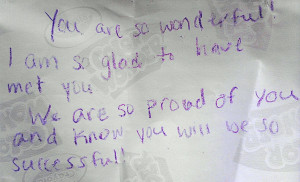 You are so wonderful!
I am so glad to have
met you
We are so proud of you
and know you will be so
successful!